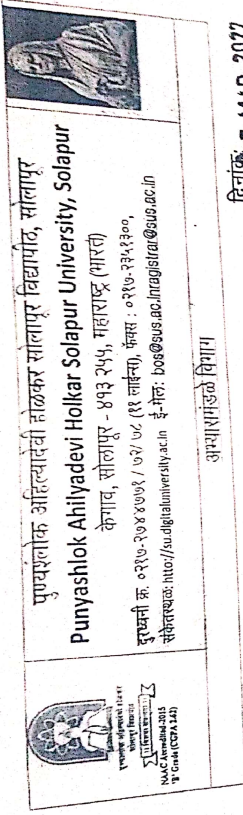 पुण्यश्लोक अहिल्यादेवी होळकर सोलापूर विद्यापीठ, सोलापूर
Punyashlok Ahilyadevi Holkar Solapur University, Solapur
केगाव, सोलापूर - ४१३ २५५, महाराष्ट्र (भारत)
दुरध्वनी क्र. ०२१७-२७४४७७१ / ७२/ ७८ (११ लाईन्स), फॅक्स : ०२१७-२३५१३००,
संकेतस्थळ: http://su.digitaluniversity.ac.in ई-मेल: bos@sus.ac.inragistrar@sus.ac.in
NAAC Accredited-2015
'B' Grade (CGPA 2.62)
अभ्यासमंडळे विभाग
दिनांक: MAR 2022